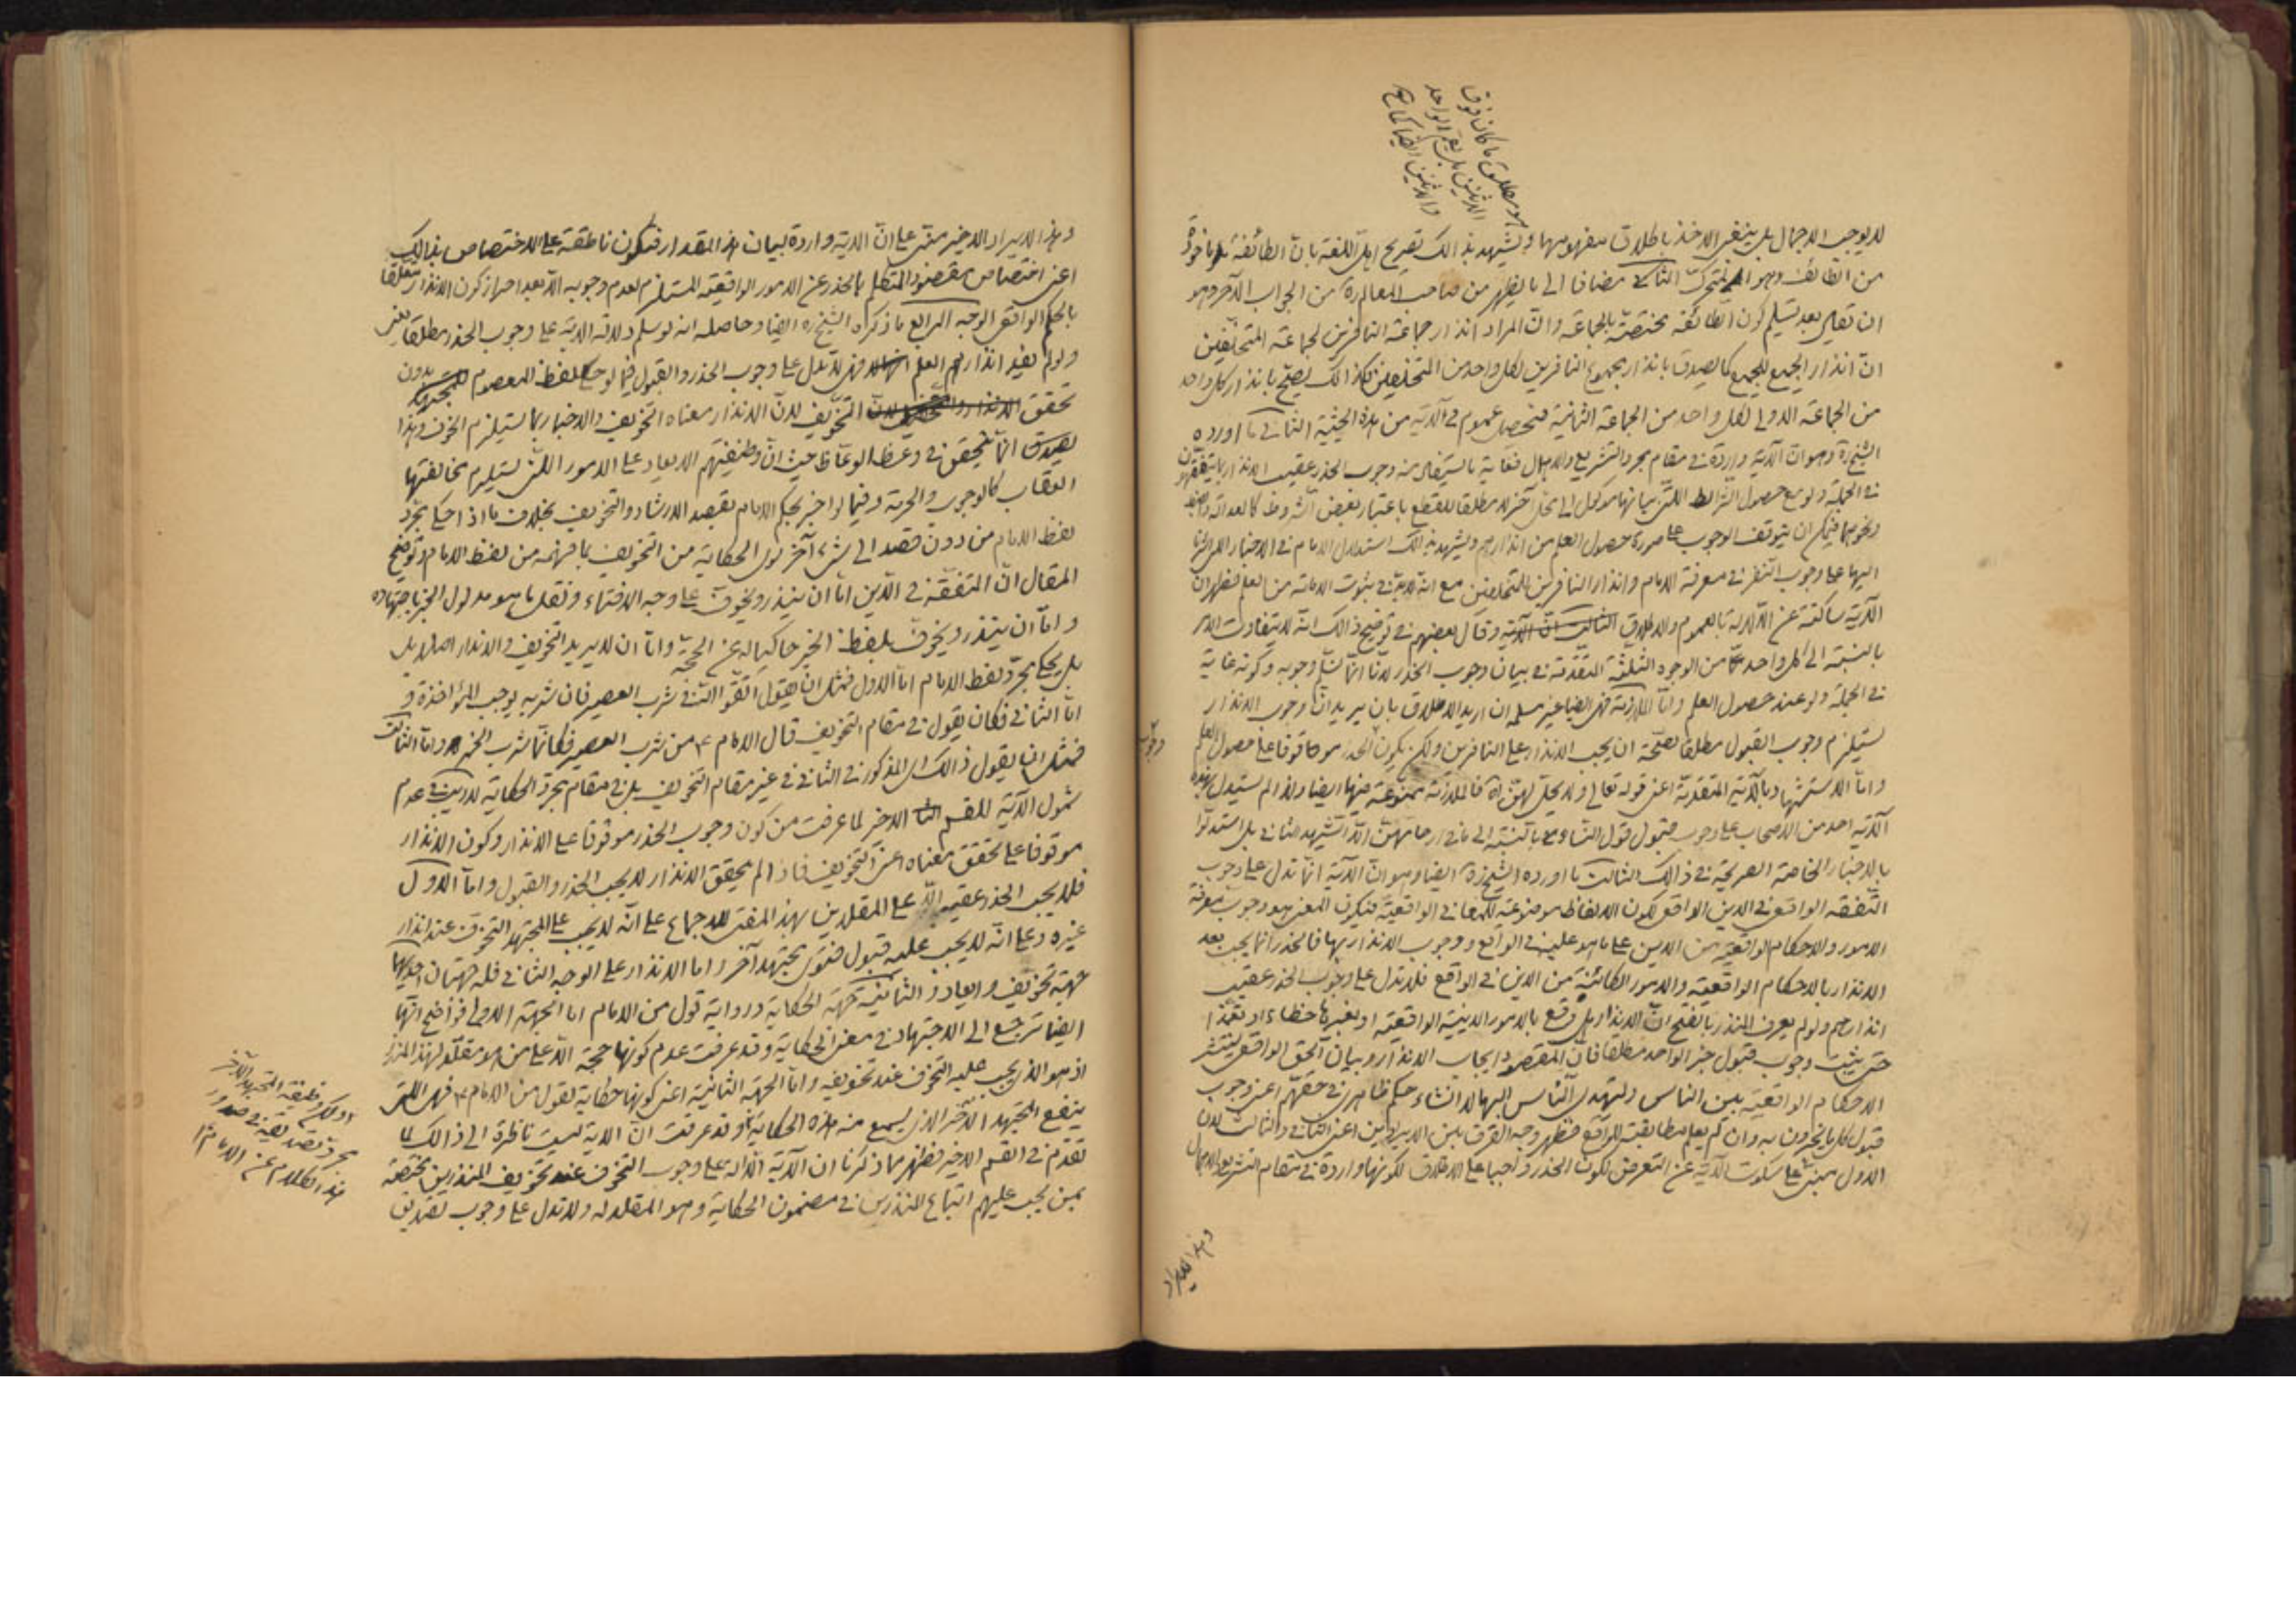 لا يوجب الاجمال بل ينبغي الاخذ باطلاق مفهومها ويشهد بذالك تصريح اهل اللغة بان الطائفة مأخوذة
من الطائف وهو المتحرك الثاني مضافا الى ما يظهر من صاحب المعالم ره من الجواب الآخر وهو
ان تعلم بعد تسليم كون الطائفة مختصة بالجماعة وانّ المراد انذار جماعة النافرين لجماعة المتخلفين
انّ انذار الجميع للجميع كما يصدق بانذار مجموع النافرين لكل واحد من المتخلفين كذالك يصحّ بانذار كل واحد
من الجماعة الاولى لكل واحد من الجماعة الثانية فتحصل عموم في الآية من هذه الحيثية الثاني ما اورده
الشيخ ره وهو ان الآية واردة في مقام مجرد التشريع والاجمال فغاية ما يستفاد منه وجوب الحذر عقيب الانذار بما يتفقهون
في الجملة ولو مع حصول الشرائط التي بيانها موكول الى محل آخر لا مطلقا للقطع باعتبار بعض الشروط كالعدالة والضبط
ونحوهما فيمكن ان يتوقف الوجوب على صورة حصول العلم من انذارهم ويشهد بذالك استدلال الامام في الاخبار المشار
اليها على وجوب النفر في معرفة الامام وانذار النافرين للمتخلفين مع انه لابد في ثبوت الامامة من العلم فظهر ان
الآية ساكتة عن الدلالة بالعموم والاطلاق وقال بعضهم في توضيح ذالك انه لا يتفاوت الامر
بالنسبة الى كل واحد من الوجوه الثلثة المتقدمة في بيان وجوب الحذر لانا انما نسلم وجوبه وكونه غاية
في الجملة ولو عند حصول العلم وامّا الملازمة فهي ايضا غير مسلم ان اريد الاطلاق بان يريد انّ وجوب الانذار
يستلزم وجوب القبول مطلقا لصحة ان يجب الانذار على النافرين ولكن يكون الحذر موقوفا على حصول العلم
وامّا الاستشهاد بالآية المتقدمة اعني قوله تعالى ولا يحل لهنّ اه فالملازمة ممنوعة فيها ايضا ولذا لم يستدل بهذه
الآية احد من الاصحاب على وجوب قبول قول النساء بالنسبة الى ما في ارحامهنّ الّا الشهيد الثاني بل استدلّوا
بالاخبار الخاصة الصريحة في ذالك الثالث ما اورده الشيخ ره ايضا وهو ان الآية انما تدل على وجوب
التفقه الواقع في الدين الواقع لكون الالفاظ موضوعة للمعاني الواقعية فيكون المعنى هو وجوب معرفة
الامور والاحكام الواقعية من الدين على ما هو عليه في الواقع ووجوب الانذار بها فالحذر انما يجب بعد
الانذار بالاحكام الواقعية والامور الكائنة من الدين في الواقع فلا تدل على وجوب الحذر عقيب
انذارهم ولو لم يعرف المنذر بالفتح انّ الانذار هل وقع بالامور الدينية الواقعية او بغيرها خطاء او تعمّدا
حتى يثبت وجوب قبول خبر الواحد مطلقا فان المقصود ايجاب الانذار وبيان الحق الواقعي لينتشر
الاحكام الواقعية بين الناس وليهتدي الناس اليها لا انشاء حكم ظاهري في حقهم اعني وجوب
قبول كل ما يخبرون به وان لم يعلم مطابقته للواقع فظهر وجه الفرق بين الايرادين اعني الثاني والثالث لان
الاول مبني على سكوت الآية عن التعرض لكون الحذر واجبا على الاطلاق لكونها واردة في مقام التشريع والاجمال
هو مطلق ما كان فوق
الاثنين بل يعم الواحد
والاثنين ايضا كما
وجوب
وهذا الايراد
وهذا الايراد الاخير مبني على انّ الآية واردة لبيان هذا المقدار فتكون ناطقة على الاختصاص بذالك
اعني اختصاص مقصود المتكلم بالحذر عن الامور الواقعية المستلزم لعدم وجوبه الّا بعد احراز كون الانذار متعلقا
بالحكم الواقعي الوجه الرابع ما ذكره الشيخ ره ايضا وحاصله انه لو سلم دلالة الآية على وجوب الحذر مطلقا يعني
ولو لم يفيد انذارهم العلم فهي لا تدل على وجوب الحذر والقبول فيما لو حكى لفظ المعصوم بدون
تحقق التخويف لان الانذار معناه التخويف والاخبار بما يستلزم الخوف وهذا
يصدق انما يتحقق في وعظ الوعّاظ حيث انّ وظيفتهم الايعاد على الامور التي يستلزم مخالفتها
العقاب كالوجوب والحرمة وفيما لو اخبر بحكم الامام بقصد الارشاد والتخويف بخلاف ما اذا حكى مجرّد
لفظ الامام من دون قصد الى شئ آخر سوى الحكاية من التخويف بما فهمه من لفظ الامام وتوضيح
المقال انّ المتفقه في الدين امّا ان ينذر ويخوف على وجه الافتاء ونقل ما هو مدلول الخبر باجتهاده
وامّا ان ينذر ويخوف بلفظ الخبر حاكيا له عن الحجة وامّا ان لا يريد التخويف والانذار اصلا بل
بل يحكى مجرّد لفظ الامام امّا الاول فمثل ان يقول اتقوا اللّه في شرب العصير فان شربه يوجب المؤاخذة و
امّا الثاني فكان يقول في مقام التخويف قال الامام ع من شرب العصير فكانّما شرب الخمر وامّا الثالث
فمثل ان يقول ذالك المذكور في الثاني في غير مقام التخويف بل في مقام مجرّد الحكاية لا ريب في عدم
شمول الآية للقسم الاخير لما عرفت من كون وجوب الحذر موقوفا على الانذار وكون الانذار
موقوفا على تحقق معناه اعني التخويف فاذا لم يتحقق الانذار لا يجب الحذر والقبول وامّا الاول
فلا يجب الحذر عقيبه الّا على المقلدين لهذا المفتي للاجماع على انّه لا يجب على المجتهد التخوف عند انذار
غيره وعلى انّه لا يجب عليه قبول فتوى مجتهد آخر وامّا الانذار على الوجه الثاني فله جهتان احديهما
جهة تخويف وايعاد والثانية جهة الحكاية ورواية قول من الامام امّا الجهة الاولى فواضح انها
ايضا ترجع الى الاجتهاد في معنى الحكاية وقد عرفت عدم كونها حجة الّا على من هو مقلّد لهذا المنذر
اذ هو الذي يجب عليه التخوف عند تخويفه وامّا الجهة الثانية اعني كونها حكاية لقول من الامام ع فهي التي
ينفع المجتهد الآخر الذي يسمع منه هذه الحكاية وقد عرفت انّ الآية ليست ناظرة الى ذالك لما
تقدّم في القسم الاخير فظهر مما ذكرنا ان الآية الدالة على وجوب التخوف عند تخويف المنذرين مختصة
بمن يجب عليهم اتباع المنذرين في مضمون الحكاية وهو المقلد له ولا تدل على وجوب تصديق
وظيفة المجتهد الآخر
مجرد تصديقه في صدور
هذا الكلام عن الامام